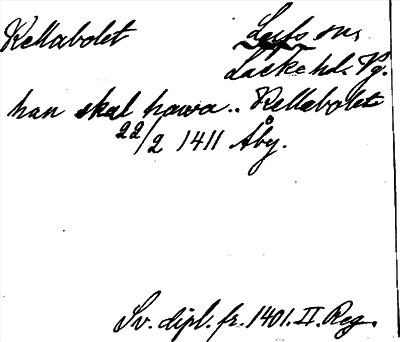 Kellabolet
Laske hd. Vg.
han skal hawa.. Kellabolet
22/2 1411 Åby.
Sv. dipl. fr. 1401. II. Reg.